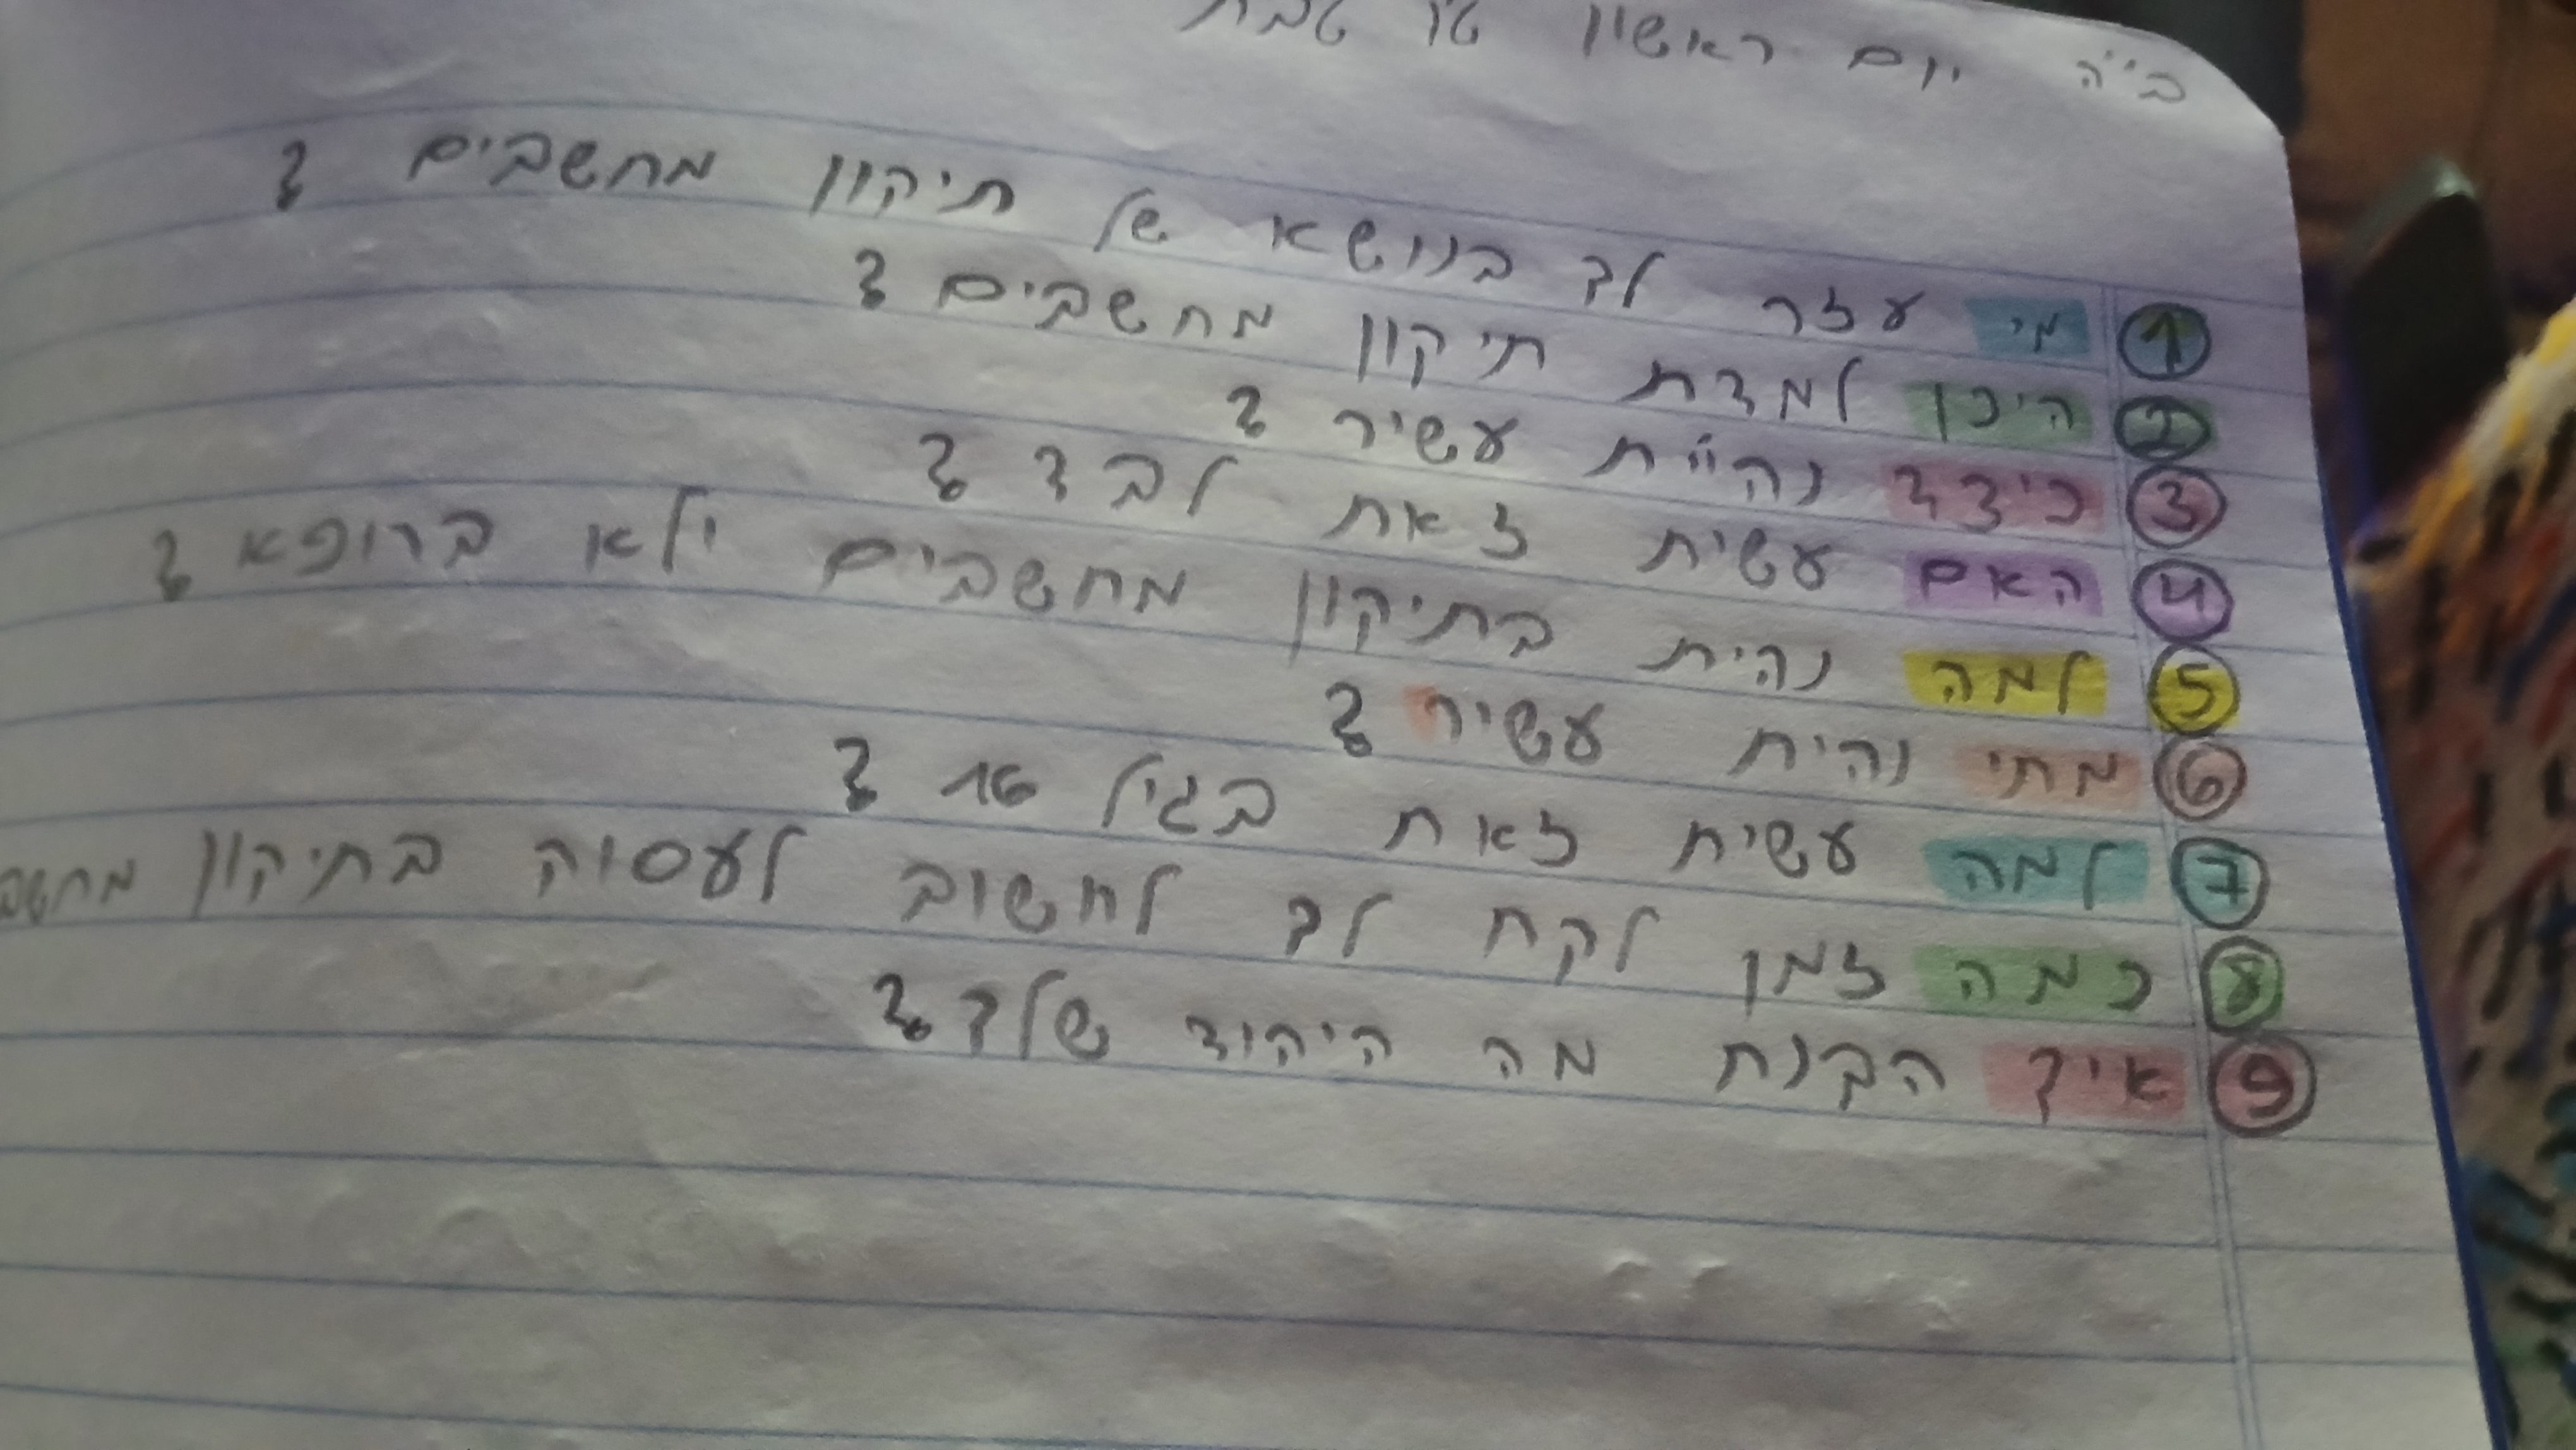 ב"ה יום ראשון ט"ו טבת
1 מי עזר לך בנושא של תיקון מחשבים ?
2 היכן למדת תיקון מחשבים ?
3 כיצד נהיית עשיר ?
4 האם עשית זאת לבד ?
5 למה נהית בתיקון מחשבים ולא ברופא ?
6 מתי נהית עשיר ?
7 למה עשית זאת בגיל 16 ?
8 כמה זמן לקח לך לחשוב לעסוה בתיקון מחשב
9 איך הבנת מה היהוד שלך ?